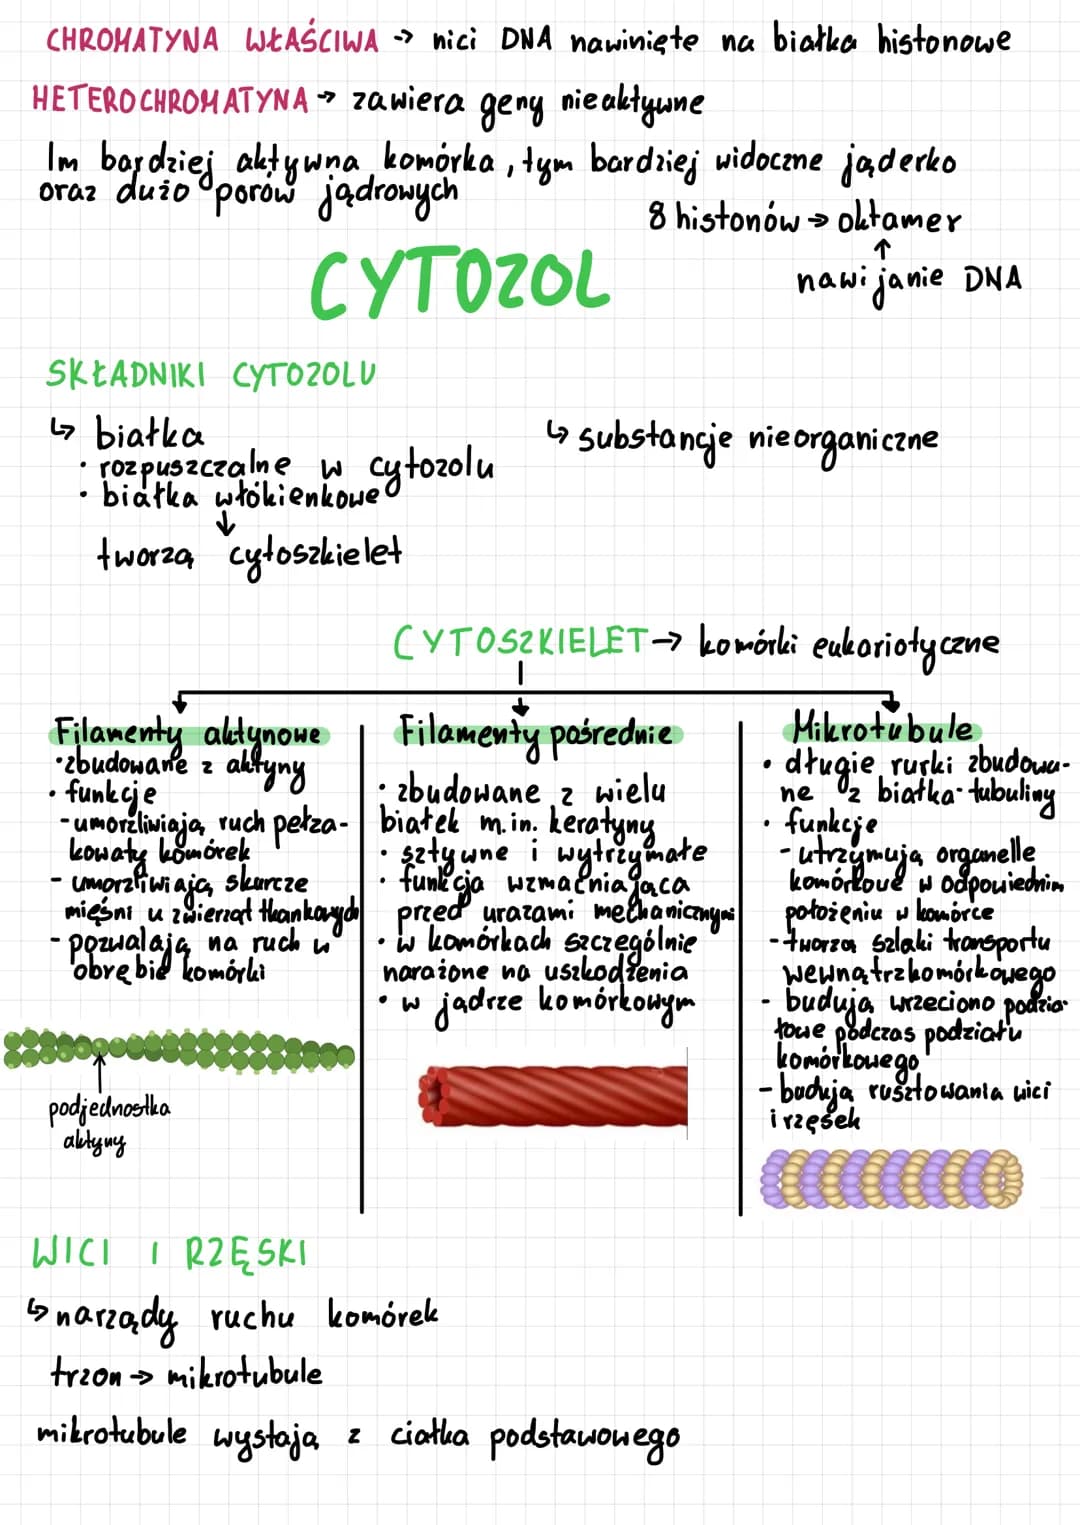 CHROMATYNA WŁAŚCIWA → nici DNA nawinięte na białka histonowe
HETEROCHROMATYNA → zawiera geny nieaktywne
Im bardziej aktywna komórka, tym bardziej widoczne jąderko
oraz dużo porów jądrowych
8 histonów → oktamer
↑
nawijanie DNA
CYTOZOL
SKŁADNIKI CYTOZOLU
↳ białka
· rozpuszczalne w cytozolu
· białka włókienkowe
↓
tworzą cytoszkielet
↳ substancje nieorganiczne
CYTOSZKIELET → komórki eukariotyczne
Filamenty aktynowe
· zbudowane z aktyny
· funkcje
- umożliwiają ruch pełza-
kowaty komórek
- umorzliwiają skurcze
mięśni u zwierząt tkankowych
- pozwalają na ruch w
obrębie komórki
podjednostka
aktyny
Filamenty pośrednie
· zbudowane z wielu
białek m.in. keratyny
· sztywne i wytrzymałe
· funkcja wzmacniająca
przed urazami mechanicznymi
· w komórkach szczególnie
narażone na uszkodzenia
· w jądrze komórkowym
Mikrotubule
· długie rurki zbudowa-
ne z białka-tubuliny
· funkcje
- utrzymują organelle
komórkowe w odpowiednim
położeniu w komórce
- tworzą szlaki transportu
wewnątrzkomórkowego
- budują wrzeciono podzia-
łowe podczas podziału
komórkowego
- budują rusztowania wici
i rzęsek
WICI I RZĘSKI
↳ narządy ruchu komórek
trzon → mikrotubule
mikrotubule wystają z ciałka podstawowego